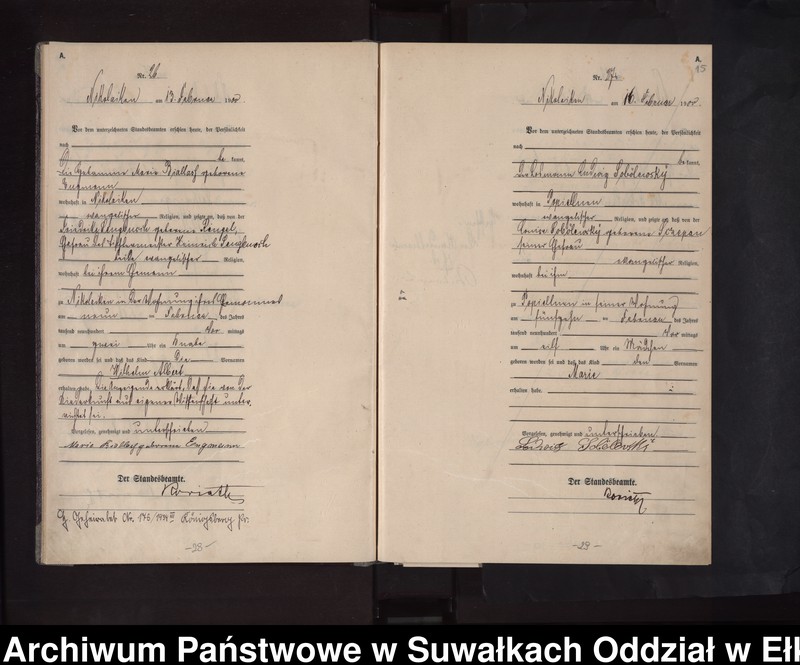 A.
Nr. 26
Nikolaiken am 13. Februar 1900.
Vor dem unterzeichneten Standesbeamten erschien heute, der Persönlichkeit
nach
be kannt,
die Hebamme Marie Biallas geborene
Engmann
wohnhaft in Nikolaiken
evangelischer Religion, und zeigte an, daß von der
geborene
Ehefrau des Heinrich
beide evangelischer Religion,
wohnhaft bei ihrem Ehemann
zu Nikolaiken in der Wohnung ihres Ehemannes
am neun ten Februar des Jahres
tausend neunhundert Vor mittags
um zwei Uhr ein Knabe
geboren worden sei und daß das Kind die Vornamen
Wilhelm Albert
erhalten habe. Die Anzeigende erklärt, daß sie von der
Niederkunft aus eigener Wissenschaft unter-
richtet sei.
Vorgelesen, genehmigt und unterschrieben
Marie geborene Engmann
Der Standesbeamte.
Geheiratet Nr. Königsberg Pr.
-28-
A.
15
Nr. 27.
Nikolaiken am 16. Februar 1900.
Vor dem unterzeichneten Standesbeamten erschien heute, der Persönlichkeit
nach
be kannt,
Ludwig Sobolewsky
wohnhaft in
evangelischer Religion, und zeigte an, daß von der
Sobolewsky geborene
seiner Ehefrau
evangelischer Religion,
wohnhaft bei ihm
zu in seiner Wohnung
am fünfzehn ten Februar des Jahres
tausend neunhundert Vor mittags
um elf Uhr ein Mädchen
geboren worden sei und daß das Kind den Vornamen
Marie
erhalten habe.
Vorgelesen, genehmigt und unterschrieben
Der Standesbeamte.
-29-
Archiwum Państwowe w Suwałkach Oddział w Eł